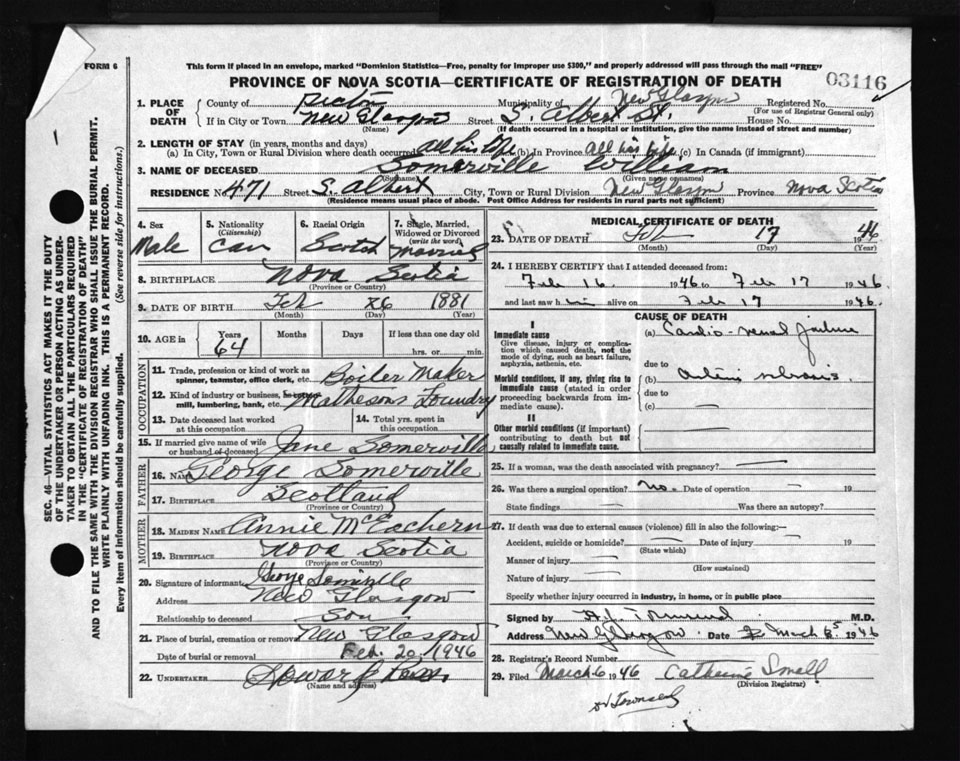 FORM 6
This form if placed in an envelope, marked "Dominion Statistics—Free, penalty for improper use $300," and properly addressed will pass through the mail "FREE"
PROVINCE OF NOVA SCOTIA—CERTIFICATE OF REGISTRATION OF DEATH
03116
1. PLACE OF DEATH
County of Pictou Municipality of New Glasgow Registered No.
(For use of Registrar General only)
If in City or Town New Glasgow Street S. Albert St. House No.
(Name) (If death occurred in a hospital or institution, give the name instead of street and number)
2. LENGTH OF STAY (in years, months and days)
(a) In City, Town or Rural Division where death occurred all his life (b) In Province all his life (c) In Canada (if immigrant)
3. NAME OF DECEASED Somerville William
(Surname) (Given name or names)
RESIDENCE No 471 Street S. Albert City, Town or Rural Division New Glasgow Province Nova Scotia
(Residence means usual place of abode. Post Office Address for residents in rural parts not sufficient)
4. Sex Male
5. Nationality (Citizenship) Can
6. Racial Origin Scotch
7. Single, Married, Widowed or Divorced (write the word) Married
8. BIRTHPLACE Nova Scotia
(Province or Country)
9. DATE OF BIRTH Feb 26 1881
(Month) (Day) (Year)
10. AGE in Years Months Days If less than one day old
64 hrs. or min.
OCCUPATION
11. Trade, profession or kind of work as spinner, teamster, office clerk, etc. Boiler Maker
12. Kind of industry or business, mill, lumbering, bank, etc. Mathesons Foundry
13. Date deceased last worked at this occupation
14. Total yrs. spent in this occupation
15. If married give name of wife or husband of deceased Jane Somerville
FATHER
16. NAME George Somerville
17. BIRTHPLACE Scotland
(Province or Country)
MOTHER
18. MAIDEN NAME Annie McEachern
19. BIRTHPLACE Nova Scotia
(Province or Country)
20. Signature of informant George Somerville
Address New Glasgow
Relationship to deceased Son
21. Place of burial, cremation or removal New Glasgow
Date of burial or removal Feb. 20, 1946
22. UNDERTAKER Howard Ross
(Name and address)
MEDICAL CERTIFICATE OF DEATH
23. DATE OF DEATH Feb 17 1946
(Month) (Day) (Year)
24. I HEREBY CERTIFY that I attended deceased from:
Feb 16 1946 to Feb 17 1946
and last saw him alive on Feb 17 1946.
CAUSE OF DEATH
I
Immediate cause
Give disease, injury or complication which caused death, not the mode of dying, such as heart failure, asphyxia, asthenia, etc.
(a) Cardio-renal failure
due to
Morbid conditions, if any, giving rise to immediate cause (stated in order proceeding backwards from immediate cause).
(b) Arterio sclerosis.
due to
(c) —
II
Other morbid conditions (if important) contributing to death but not causally related to immediate cause.
25. If a woman, was the death associated with pregnancy? —
26. Was there a surgical operation? no. Date of operation — 19
State findings — Was there an autopsy?
27. If death was due to external causes (violence) fill in also the following:—
Accident, suicide or homicide? — Date of injury — 19
(State which)
Manner of injury —
(How sustained)
Nature of injury —
Specify whether injury occurred in industry, in home, or in public place
Signed by M.D.
Address New Glasgow Date March 5 1946
28. Registrar's Record Number
29. Filed March 6 1946 Catherine Small
(Division Registrar)
Dr Townsend
SEC. 46—VITAL STATISTICS ACT MAKES IT THE DUTY
OF THE UNDERTAKER OR PERSON ACTING AS UNDER-
TAKER TO OBTAIN ALL THE PARTICULARS REQUIRED
IN THE "CERTIFICATE OF REGISTRATION OF DEATH"
AND TO FILE THE SAME WITH THE DIVISION REGISTRAR WHO SHALL ISSUE THE BURIAL PERMIT.
WRITE PLAINLY WITH UNFADING INK. THIS IS A PERMANENT RECORD.
Every item of information should be carefully supplied. (See reverse side for instructions.)